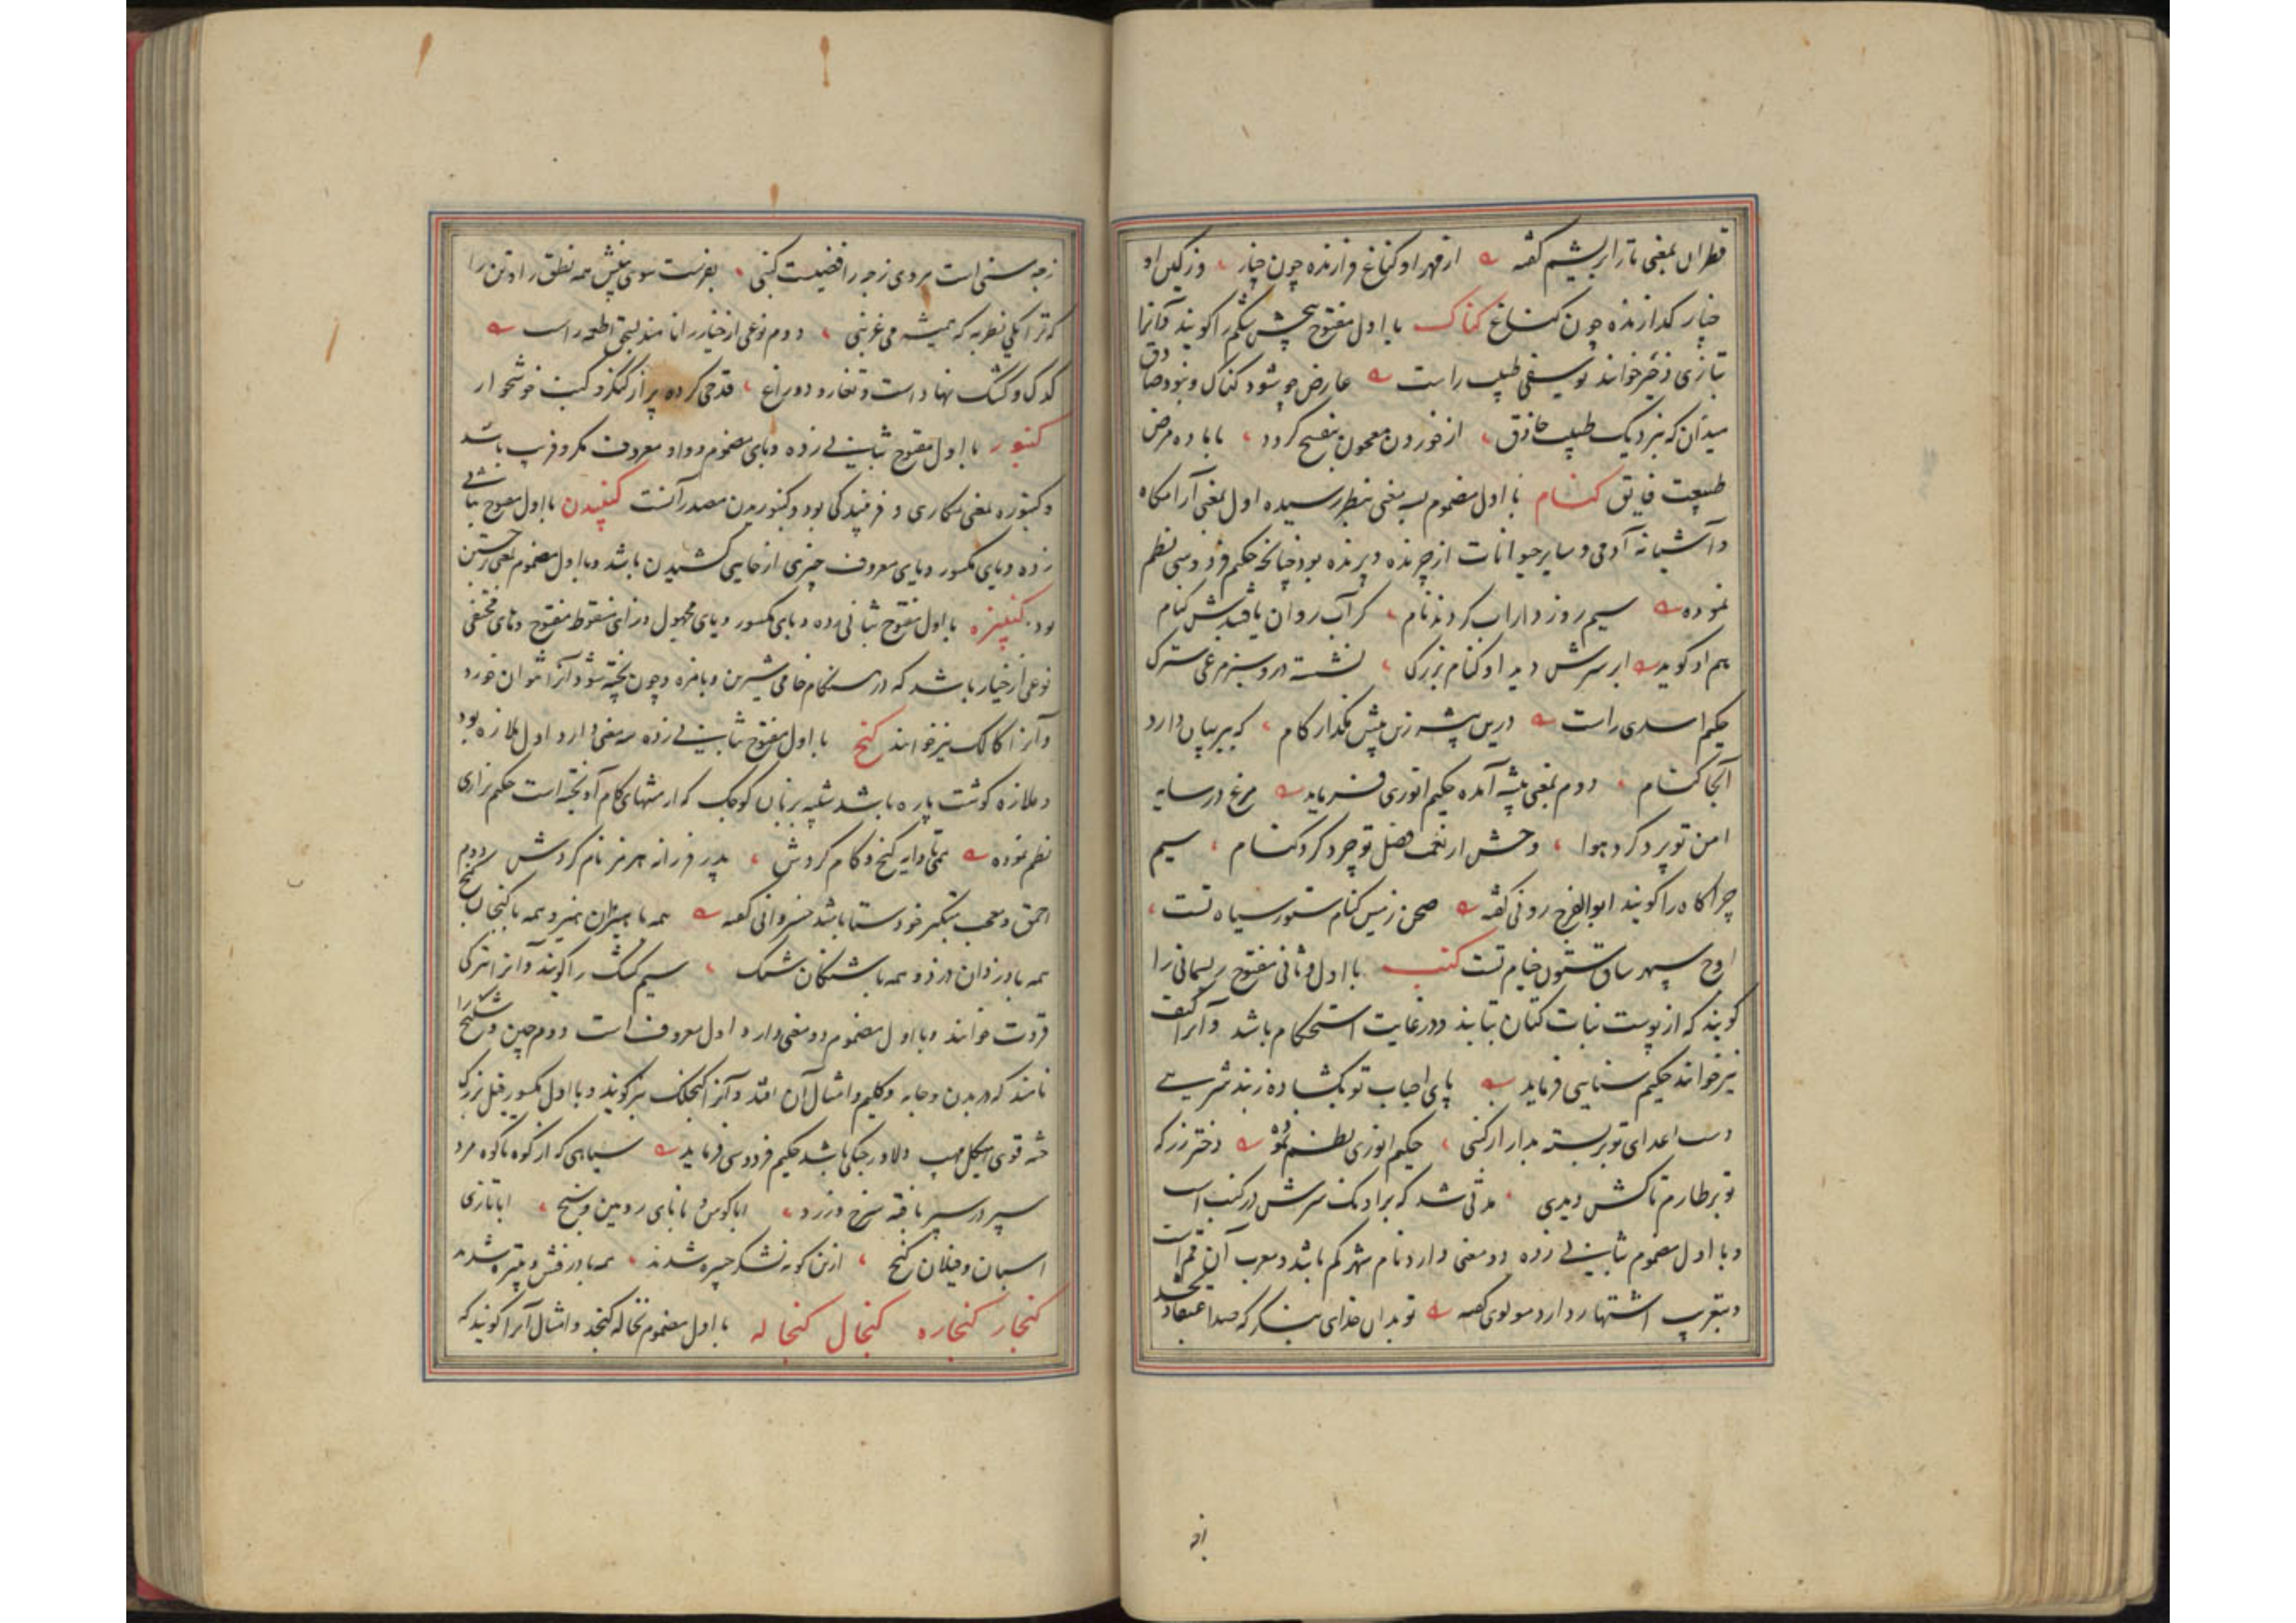 قطران بمعنی تار ابریشم گفته از قهر او کناغ فرازنده چون چنار وز کین او
چنار گدازنده چون کناغ کناک با اول مفتوح پیچش شکم را گویند و آنرا
بتازی زحیر خوانند یوسفی طبیب راست عارض چو شود کناک و نبود صادق
میدان که بنزدیک طبیب حاذق از خوردن معجون بنفسج گردد با باده مرض
طبیعت فایق کنام با اول مضموم سه معنی بنظر رسیده اول بمعنی آرامگاه
و آشیانه آدمی و سایر حیوانات از چرنده و پرنده بود چنانچه حکیم فردوسی نظم
نموده سیم روز داراب کردند نام کز آب روان یافتندش کنام
هم او گوید ابر سرش دید او کنام بزرگ نشسته درو سبز مرغی سترک
حکیم اسدی راست درین بیشه زین پیش مگذار گام که ببر بیان دارد
آنجا کنام دوم بمعنی بیشه آمده حکیم انوری فرماید مرغ در سایه
امن تو پرد گرد هوا وحش از نعمت فضل تو چرد گرد کنام سیم
چراگاه را گویند ابوالفرج رونی گفته صحن زمین کنام ستور سیاه تست
اوج سپهر ساق ستون خیام تست کنب با اول و ثانی مفتوح ریسمانی را
گویند که از پوست نبات کتان بتابند و در غایت استحکام باشد و آنرا کنف
نیز خوانند حکیم سنایی فرماید پای احباب تو بگشاده زبند شر بسی
دست اعدای تو بر بسته بدار ار کنبی حکیم انوری نظم نموده دختر رز که
تو بر طارم تاکش دیدی مدتی شد که بر آونگ سرش در کنب است
و با اول مضموم بثانی زده دو معنی دارد نام شهر قم باشد و معرب آن قم است
و بتعریب اشتهار دارد مولوی گفته تو بدان خدای بنگر که صد اعتقاد بخشد
ز چه سنی است مروی ز چه رافضیست کنبی بفرست سوی بینش همه نطق را و تن را
که ترا یکی نظر به که همیشه می غرنبی دوم نوعی از خیار را نامند بسحق اطعمه راست
کدک و کنبک نهاد است و تغار و دوراغ قدحی کرده پر از کنگر و کنب خوشخوار
کنبور با اول مفتوح بثانی زده و بای مضموم و واو معروف مکر و فریب باشد
و کنبوره بمعنی مکاری و فریبندگی بود و کنبوریدن مصدر آنست کنبیدن با اول مفتوح بثانی
زده و بای مکسور و یای معروف چیزی از جایی کشیدن باشد و با اول مضموم بمعنی جستن
بود کنبیزه با اول مفتوح بثانی زده و بای مکسور و یای مجهول و زای منقوط مفتوح و های مختفی
نوعی از خیار باشد که در هنگام خامی شیرین و بامزه و چون پخته شود آنرا نتوان خورد
و آنرا کالک نیز خوانند کنج با اول مفتوح بثانی زده سه معنی دارد اول ملازه بود
و ملازه گوشت پاره باشد شبیه بزبان کوچک که از منتهای کام آویخته است حکیم نزاری
نظم نموده همی تا دایه کنج و کام کردش پدر فرزانه هرمز نام کردش دوم
احمق و معجب متکبر خودستا باشد خسروانی گفته همه با هیزان هیز و همه با کنجان کنج
همه با دزدان دزد و همه با شنگان شنگ سیم کشک را گویند و آنرا بترکی
قروت خوانند و با اول مضموم دو معنی دارد اول معروف است دوم چین و شکنج را
نامند که در بدن و جامه و گلیم و امثال آن افتد و آنرا کنجلک نیز گویند و با اول مکسور فیل بزرگ
جثه قوی هیکل مهیب و دلاور جنگی باشد حکیم فردوسی فرماید سپاهی که از کوه تا کوه مرد
سپر در سپر بافته سرخ و زرد ابا کوس و با نای رویین و سنج ابا تازی
اسبان و فیلان کنج ازین گونه لشکر چیره شدند همه با درفش و تبیره شدند
کنجار کنجاره کنجال کنجاله با اول مضموم نخاله کنجد و امثال آنرا گویند که
زچه